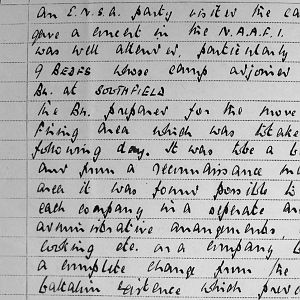 An E.N.S.A. party visited the ca
gave a concert in the N.A.A.F.I.
was well attended, particularly
9 BEDFS whose camp adjoined
Bn. at SOUTHFIELD
The Bn. prepared for the move
firing area which was to take
following day. It was to be a b
and from a reconnaissance ma
area it was found possible to
each company in a seperate are
administrative arrangements,
cooking etc. on a company b
a complete change from the
battalion existence which prev